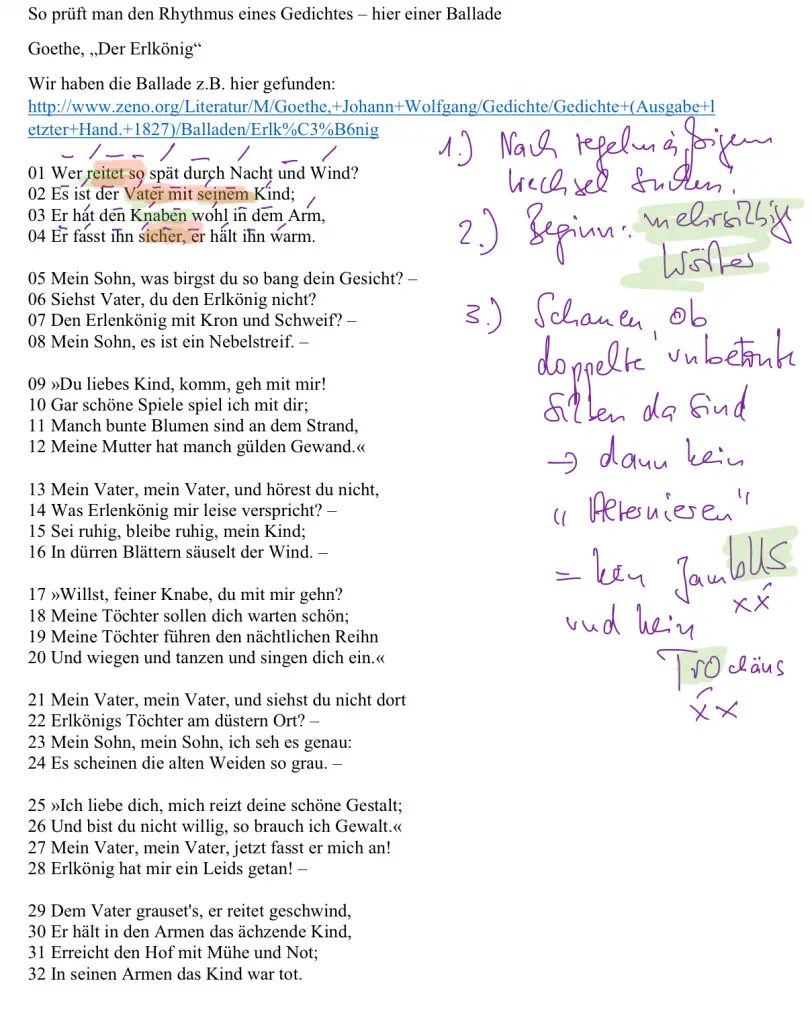 So prüft man den Rhythmus eines Gedichtes – hier einer Ballade
Goethe, „Der Erlkönig“
Wir haben die Ballade z.B. hier gefunden:
http://www.zeno.org/Literatur/M/Goethe,+Johann+Wolfgang/Gedichte/Gedichte+(Ausgabe+l
etzter+Hand.+1827)/Balladen/Erlk%C3%B6nig
01 Wer reitet so spät durch Nacht und Wind?
02 Es ist der Vater mit seinem Kind;
03 Er hat den Knaben wohl in dem Arm,
04 Er fasst ihn sicher, er hält ihn warm.
05 Mein Sohn, was birgst du so bang dein Gesicht? –
06 Siehst Vater, du den Erlkönig nicht?
07 Den Erlenkönig mit Kron und Schweif? –
08 Mein Sohn, es ist ein Nebelstreif. –
09 »Du liebes Kind, komm, geh mit mir!
10 Gar schöne Spiele spiel ich mit dir;
11 Manch bunte Blumen sind an dem Strand,
12 Meine Mutter hat manch gülden Gewand.«
13 Mein Vater, mein Vater, und hörest du nicht,
14 Was Erlenkönig mir leise verspricht? –
15 Sei ruhig, bleibe ruhig, mein Kind;
16 In dürren Blättern säuselt der Wind. –
17 »Willst, feiner Knabe, du mit mir gehn?
18 Meine Töchter sollen dich warten schön;
19 Meine Töchter führen den nächtlichen Reihn
20 Und wiegen und tanzen und singen dich ein.«
21 Mein Vater, mein Vater, und siehst du nicht dort
22 Erlkönigs Töchter am düstern Ort? –
23 Mein Sohn, mein Sohn, ich seh es genau:
24 Es scheinen die alten Weiden so grau. –
25 »Ich liebe dich, mich reizt deine schöne Gestalt;
26 Und bist du nicht willig, so brauch ich Gewalt.«
27 Mein Vater, mein Vater, jetzt fasst er mich an!
28 Erlkönig hat mir ein Leids getan! –
29 Dem Vater grauset's, er reitet geschwind,
30 Er hält in den Armen das ächzende Kind,
31 Erreicht den Hof mit Mühe und Not;
32 In seinen Armen das Kind war tot.
1.) Nach regelmäßigem
Wechsel suchen!
2.) Beginn: mehrsilbig
Wörter
3.) Schauen, ob
doppelte unbetonte
Silben da sind
→ dann kein
"Alternieren"
= kein JambUS
xx́
und kein
TROchäus
x́x